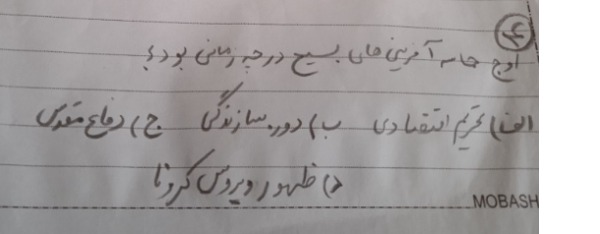 ۴
اوج حماسه آفرینی های بسیج در چه زمانی بود؟
الف) تحریم اقتصادی ب) دوره سازندگی ج) دفاع مقدس
د) ظهور ویروس کرونا
MOBASH